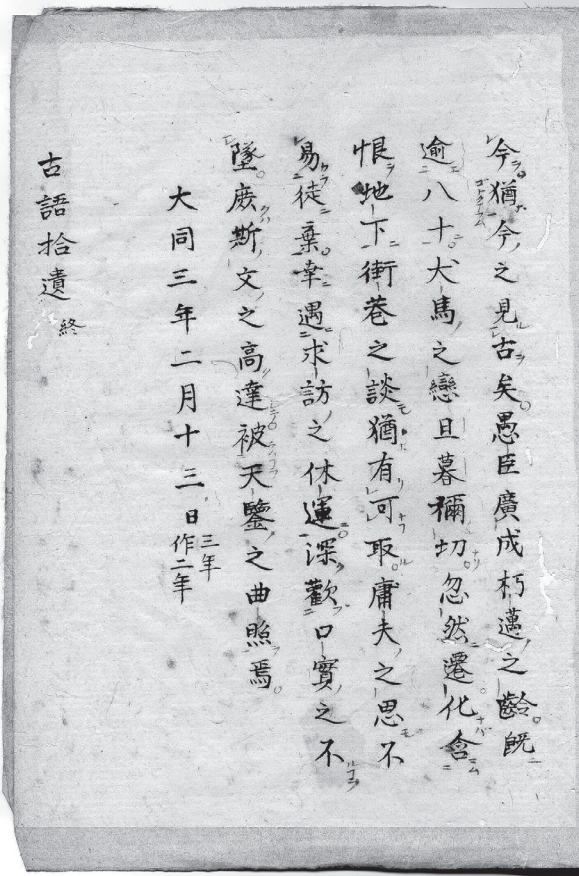 今猶今之見古矣愚臣廣成朽邁之齡既
逾八十犬馬之戀旦暮彌切忽然遷化含
恨地下街巷之談猶有可取庸夫之思不
易徒棄幸遇求訪之休運深歡口實之不
墜庶斯文之高達被天鑒之曲照焉
大同三年二月十三日 三年作二年
古語拾遺終